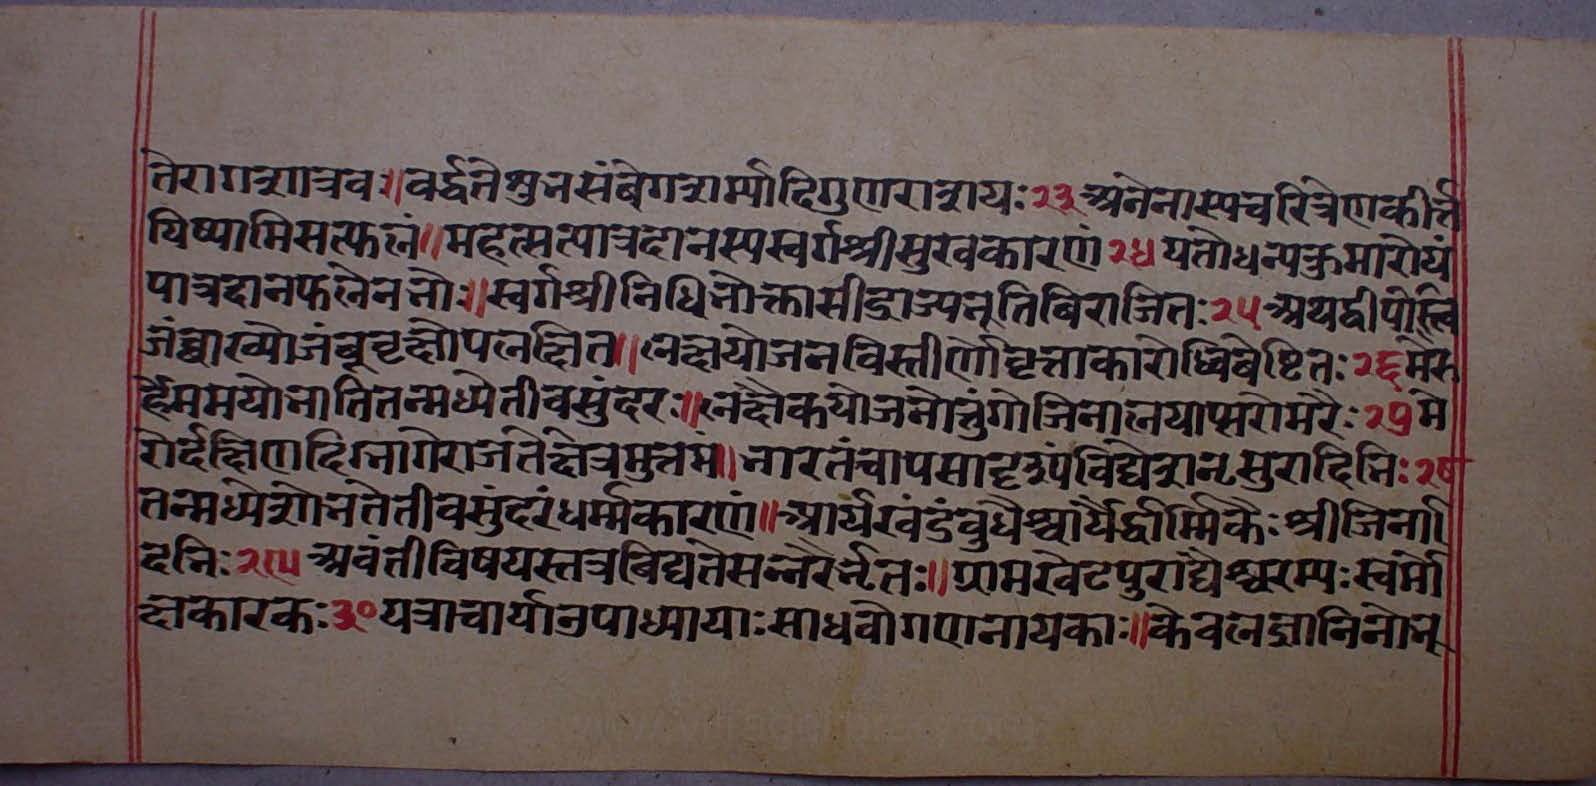 तेरागशत्रवः॥वर्द्धतेशुभसंबेगशर्म्मादिगुणराशयः२३अनेनास्यचरित्रेणकीर्त्त
यिष्यामिसत्फलं॥महत्सत्पात्रदानस्यस्वर्गश्रीसुखकारणं२४यतोधन्यकुमारोयं
पात्रदानफलेनभोः॥स्वर्गश्रीनिधिभोक्तासीद्राज्यभूतिबिराजितः२५अथद्वीपोस्ति
जंब्वाख्योजंबूवृक्षोपलक्षित॥लक्षयोजनविस्तीर्णोवृत्ताकारोब्धिबेष्टितः२६मेरु
र्हैममयोभातितन्मध्येतीवसुंदरः॥लक्षैकयोजनोत्तुंगोजिनालयाप्सरोमरैः२७मे
रोर्दक्षिणदिग्भागेराजतेक्षेत्रमुत्तमं॥भारतंचापसादृरूपंविद्येशनृसुरादिभिः२८
तन्मध्येशोभतेतीवसुंदरंधर्म्मकारणं॥आर्यखंडंबुधैश्चार्यैर्द्धार्म्मिकैःश्रीजिना
दभिः२९अवंतीविषयस्तत्रबिद्यतेसज्जनैर्भृतः॥ग्रामखेटपुराद्यैश्चरम्यःस्वर्मो
क्षकारकः३०यत्राचार्याउपाध्यायाःसाधवोगणनायकाः॥केवलज्ञानिनोभू